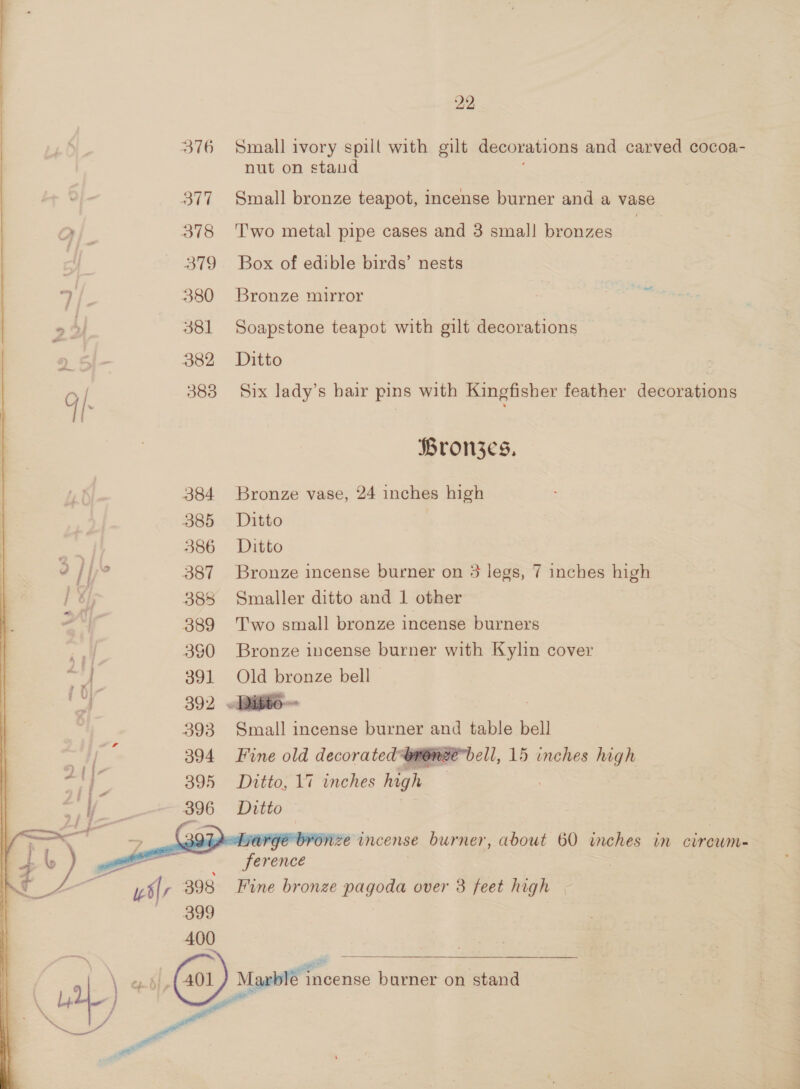 22
376 Small ivory spill with gilt decorations and carved cocoa-
nut on stand
377 Small bronze teapot, incense burner and a vase
378 Two metal pipe cases and 3 small bronzes
379 Box of edible birds' nests
7/- 380 Bronze mirror
381 Soapstone teapot with gilt decorations
382 Ditto
9/- 383 Six lady's hair pins with Kingfisher feather decorations
Bronzes.
384 Bronze vase, 24 inches high
385 Ditto
386 Ditto
387 Bronze incense burner on 3 legs, 7 inches high
388 Smaller ditto and 1 other
389 Two small bronze incense burners
390 Bronze incense burner with Kylin cover
391 Old bronze bell
392 Ditto
393 Small incense burner and table bell
394 Fine old decorated bronze bell, 15 inches high
395 Ditto, 17 inches high
396 Ditto
397 Large bronze incense burner, about 60 inches in circum-
ference
398 Fine bronze pagoda over 3 feet high
399
400
401 Marble incense burner on stand